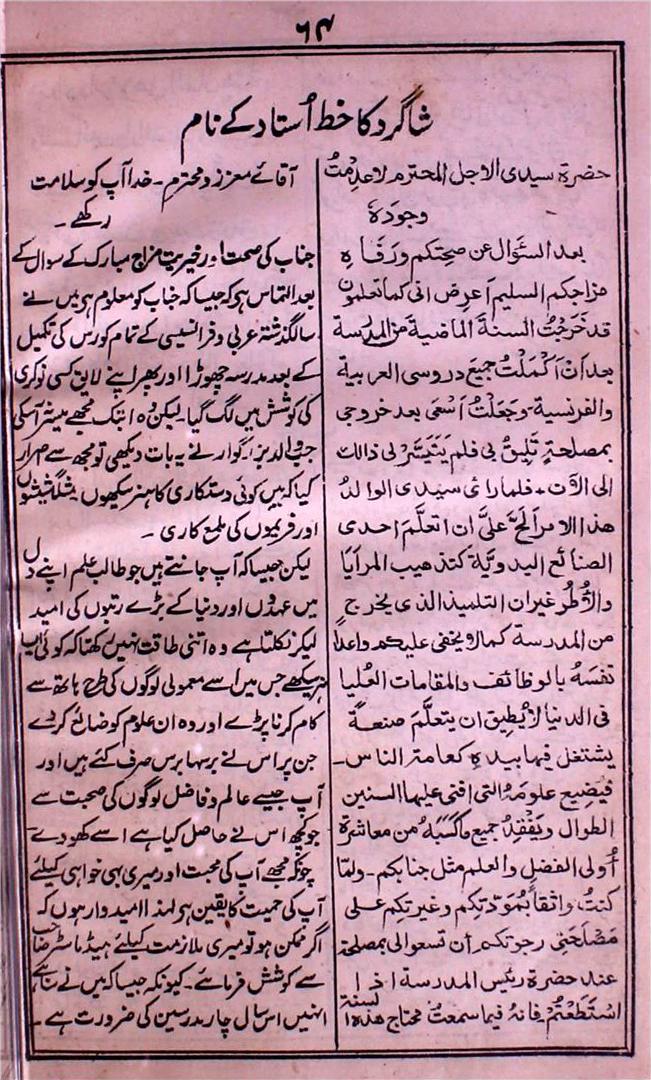 ۶۴
شاگرد کا خط اُستاد کے نام
حضرة سيدى الاجل المحترم لاعدمتُ
وجودَهٗ
بعد السُّؤال عن صحتكم ورَفَاهِ
مزاجكم السليم اَعرِض انى كما تعلمون
قد خَرَجْتُ السنةَ الماضيةَ من المدرسة
بعد اَنْ اَكْمَلْتُ جميعَ دروسى العربية
والفرنسية۔ وجَعَلْتُ اَسْعٰى بعد خروجى
بمصلحةٍ تَلِيقُ بى فلم يَتَيَسَّرْ لى ذالك
الى الآن۔ فلما رائ سيدى الوالدُ
هذا الامر اَلَحَّ علىَّ ان اتعلَّمَ احدى
الصنائع اليدويَّة كتذهيب المرآيا
والاُطُر غيران التلميذ الذى يخرج
من المدرسة كما لا يخفى عليكم واعداً
نفسَهُ بالوظائف والمقامات العُليا
فى الدنيا لا يُطيق ان يتعلَّم صنعةً
يشتغل فيها بيدهِ كعامة الناس۔
فيضيع علومَهُ التى افنى عليها السنين
الطوال ويَفْقِدُ جميع ماكَسَبَهُ من معاشرة
اُولى الفضل والعلم مثل جنابكم۔ ولمّا
كنتُ واثقاً بمَوَدَّتِكم وغيرتِكم على
مَصْلَحَتى رجوتكم أن تسعوا لى بمصلحة
عند حضرة رئيس المدرسة اذا
استَطَعْتُمْ فانهٗ فيما سمعتُ محتاج هذه السنة
آقائے معزز و محترم۔ خدا آپ کو سلامت
رکھے۔
جناب کی صحت اور خیریت مزاج مبارک کے سوال کے
بعد التماس ہی کہ جیسا کہ جناب کو معلوم ہی میں نے
سالگذشتہ عربی و فرانسیسی کے تمام کورس کی تکمیل
کے بعد مدرسہ چھوڑا اور پھر اپنے لایق کسی نوکری
کی کوشش میں لگ گیا۔ لیکن وہ ابتک مجھے میسر نہ آسکی
جب والد بزرگوار نے یہ بات دیکھی تو مجھ سے اصرار
کیا کہ میں کوئی دستکاری کا ہنر سیکھوں۔ مثلاً شیشوں
اور فریموں کی ملمع کاری۔
لیکن جیسا کہ آپ جانتے ہیں جو طالب علم اپنے دل
میں عہدوں اور دنیا کے بڑے رتبوں کی امید
لیکر نکلتا ہے وہ اتنی طاقت نہیں رکھتا کہ کوئی ایسا
ہنر سیکھے جس میں اسے معمولی لوگوں کی طرح ہاتھ سے
کام کرنا پڑے اور وہ ان علوم کو ضائع کر دے
جن پر اس نے برسہا برس صرف کئے ہیں اور
آپ جیسے عالم و فاضل لوگوں کی صحبت سے
جو کچھ اس نے حاصل کیا ہے اسے کھو دے
چونکہ مجھے آپ کی محبت اور میری بہی خواہی کیلئے
آپ کی حمیت کا یقین ہی لہذا امیدوار ہوں کہ
اگر ممکن ہو تو میری ملازمت کیلئے ہیڈ ماسٹر صاحب
سے کوشش فرمائے۔ کیونکہ جیسا کہ میں نے سنا ہے
انہیں اس سال چار مدرسین کی ضرورت ہے۔